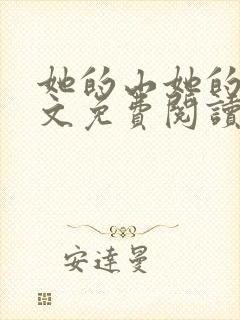 她的山她的
文免費閱讀
安達曼